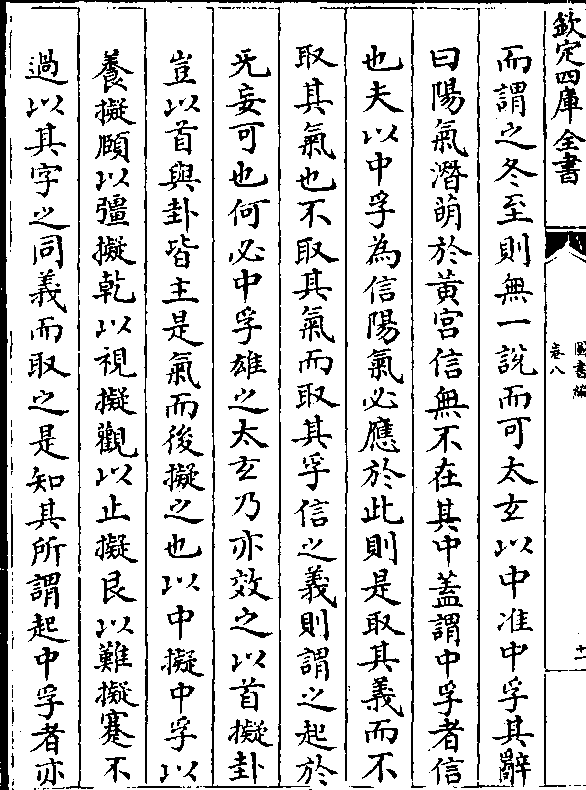 欽定四庫全書
圖書編
卷八
十一
而謂之冬至則無一說而可太玄以中准中孚其辭
曰陽氣潛萌於黃宮信無不在其中蓋謂中孚者信
也夫以中孚為信陽氣必應於此則是取其義而不
取其氣也不取其氣而取其孚信之義則謂之起於
无妄可也何必中孚雄之太玄乃亦效之以首擬卦
豈以首與卦皆主是氣而後擬之也以中擬中孚以
養擬頤以彊擬乾以視擬觀以止擬艮以難擬蹇不
過以其字之同義而取之是知其所謂起中孚者亦